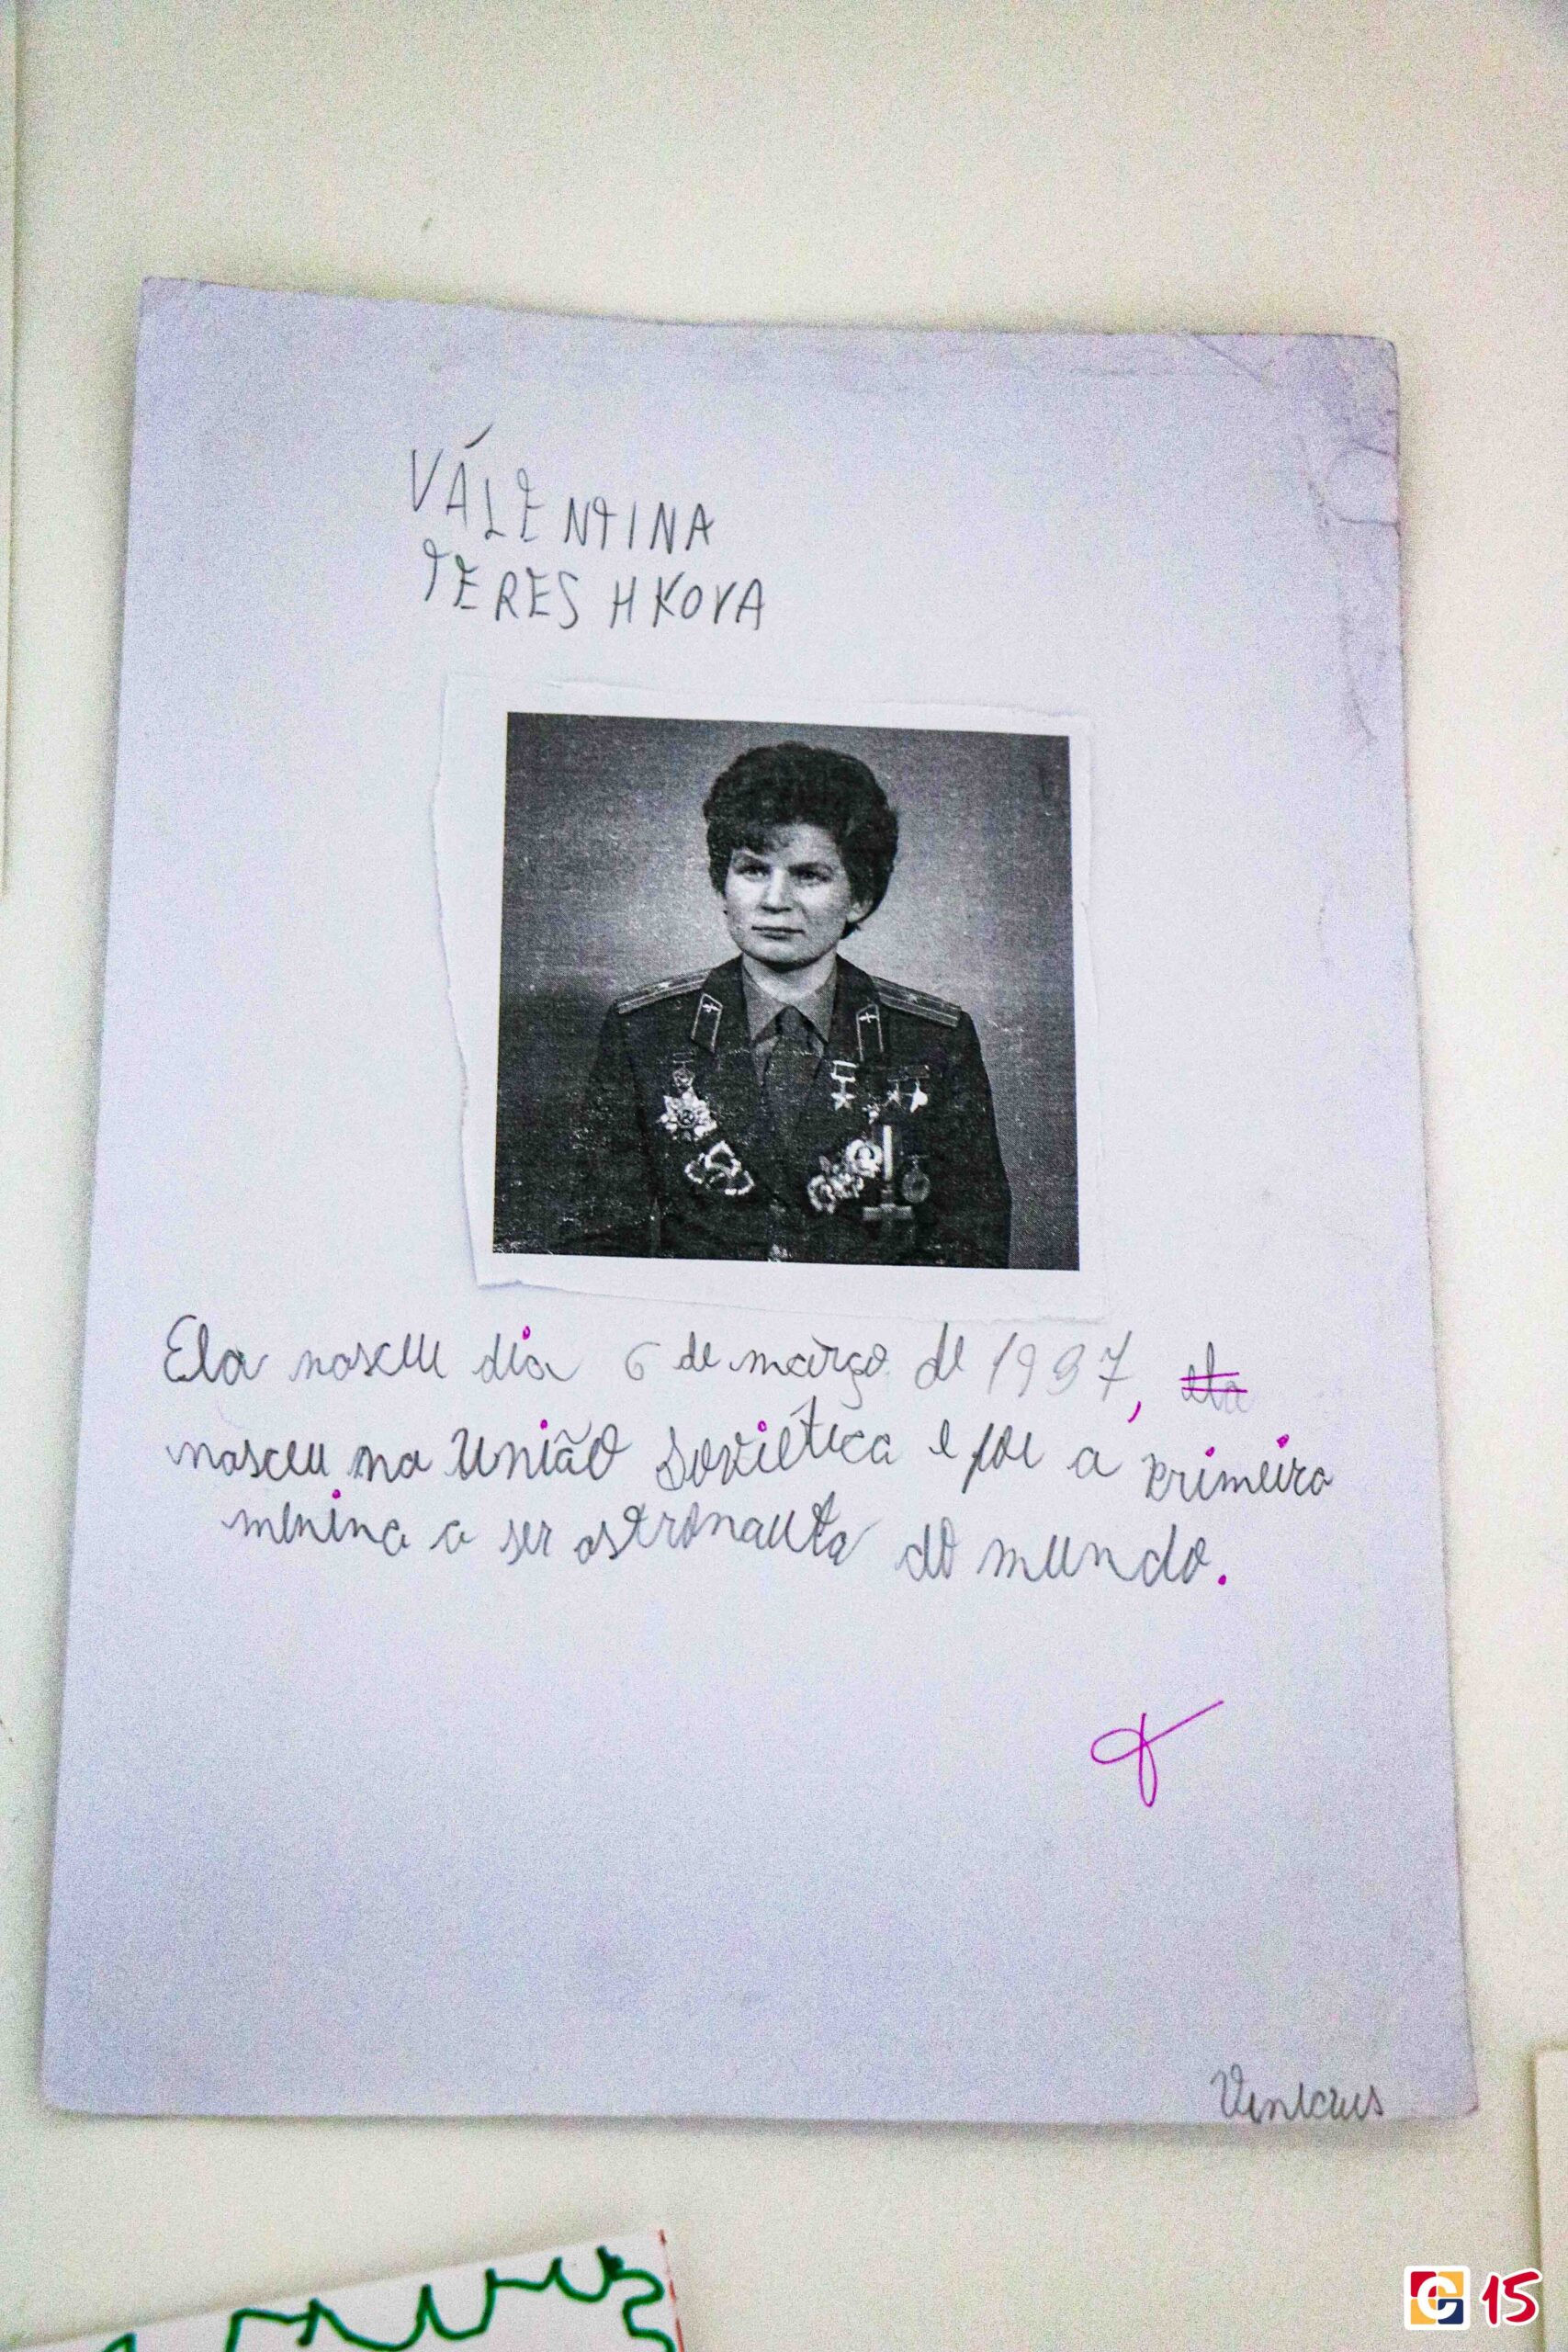 VÁLENTINA
TERESHKOVA
Ela nasceu dia 6 de março de 1937, ela
nasceu na União Soviética e foi a primeira
menina a ser astronauta do mundo.
Vinicius
15